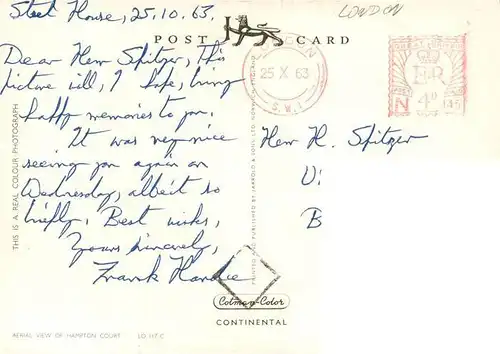 Steel House, 25.10.63.
LONDON
POST CARD
Dear Herr Spitzer, This
picture will, I hope, bring
happy memories to you.
It was very nice
seeing you again on
Wednesday, albeit so
briefly. Best wishes,
Yours sincerely,
Frank Hardie
LONDON
25 X 63
S.W.1
E II R
4D
N
Herr H. Spitzer
U:
B
THIS IS A REAL COLOUR PHOTOGRAPH
PRINTED AND PUBLISHED BY JARROLD & SONS LTD. NORWICH, ENGLAND
Colman-Color
CONTINENTAL
AERIAL VIEW OF HAMPTON COURT